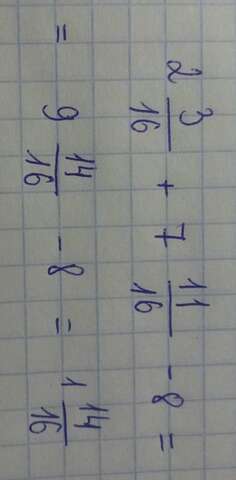 2 3/16 + 7 11/16 - 8 =
= 9 14/16 - 8 = 1 14/16